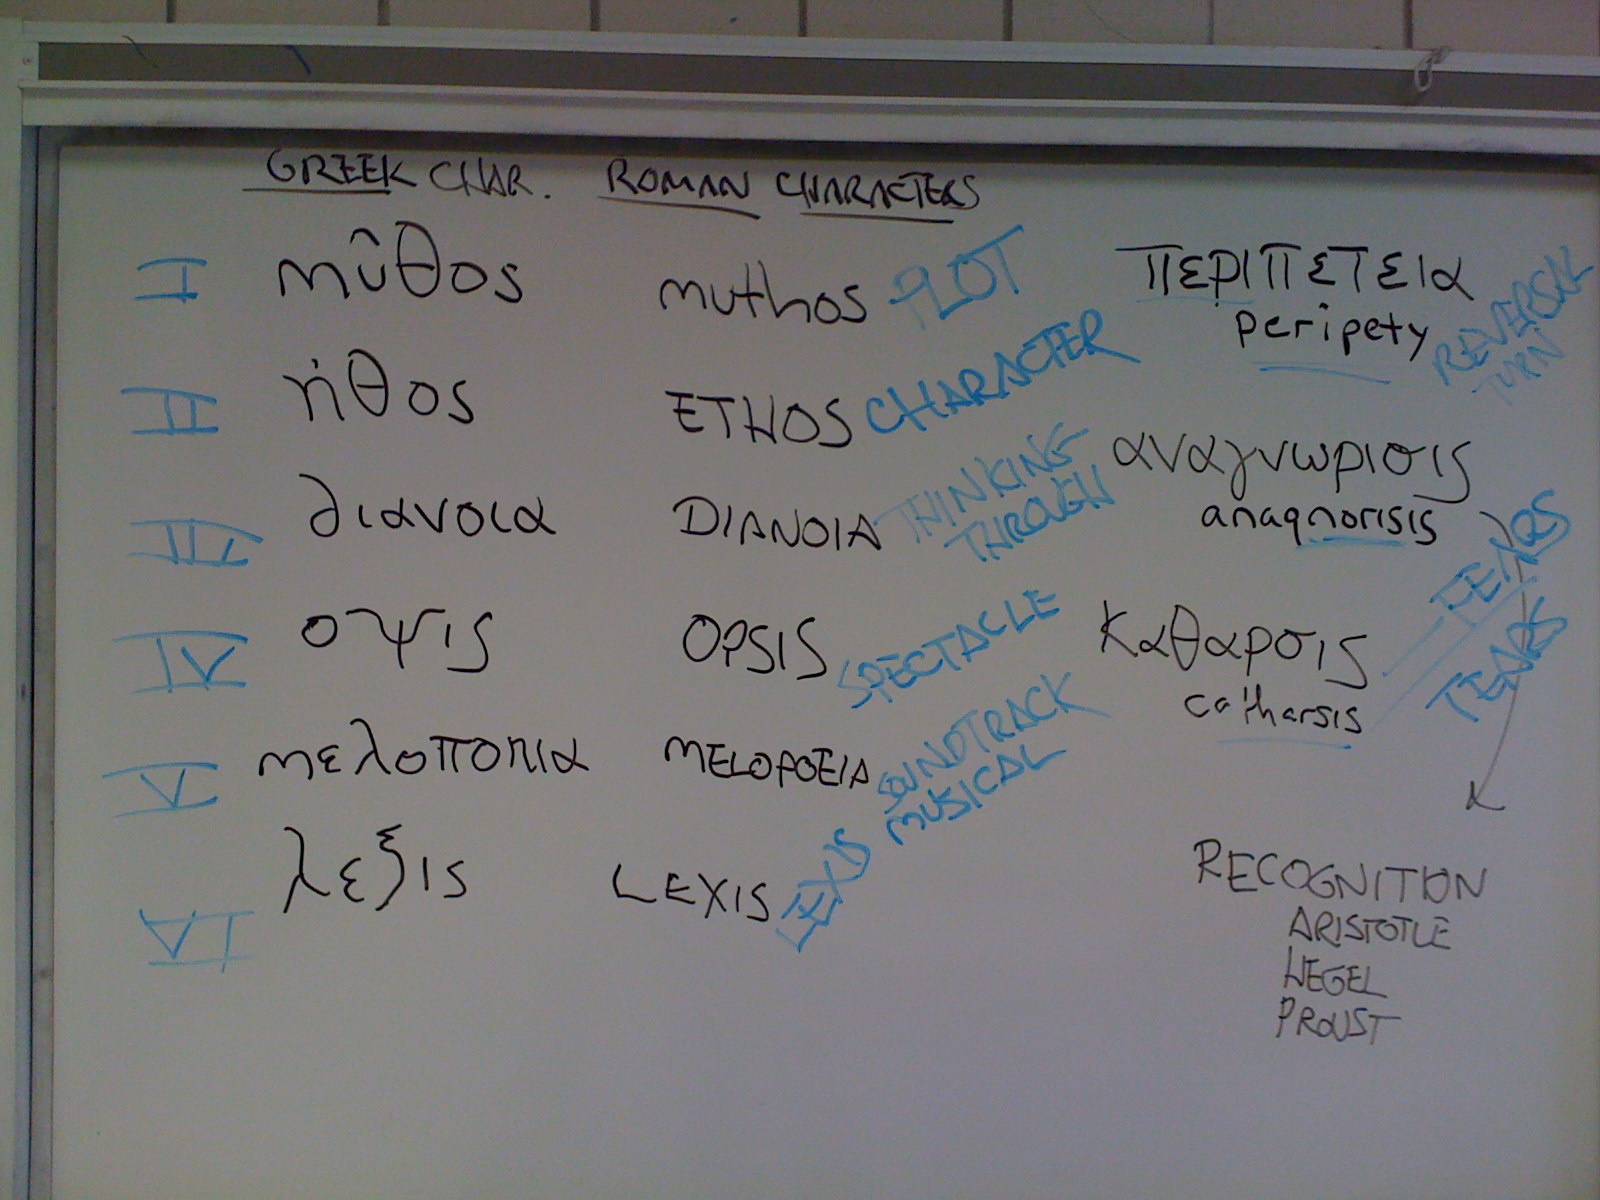 GREEK CHAR. ROMAN CHARACTERS
I μῦθος muthos PLOT
II ἠθος ETHOS CHARACTER
III διανοια DIANOIA THINKING THROUGH
IV οψις OPSIS SPECTACLE
V μελοποπια MELOPOEIA SOUNDTRACK MUSICAL
VI λεξις LEXIS LEXIS
περιπετεια
peripety
REVERSAL
TURN
αναγνωρισις
anagnorisis
καθαρσις
catharsis
FEARS
TEARS
RECOGNITION
ARISTOTLE
HEGEL
PROUST